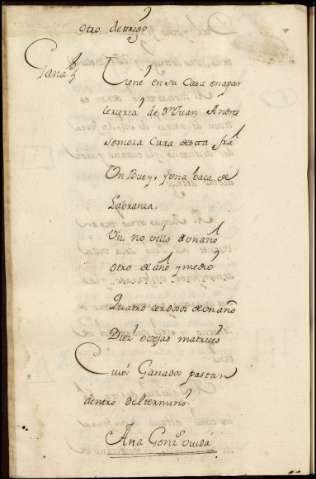 otro de trigo
Ganado
Tiene en su Casa en apar
zeria de Dn Juan Andres
Cura de otra
Un buey, y una baca de
Labranza.
Un novillo de un año
otro de año y medio
Quatro cerdos de un año
Diez ovejas matrices
Cuios Ganados pastan
dentro del termino
Ana Gonz Viuda